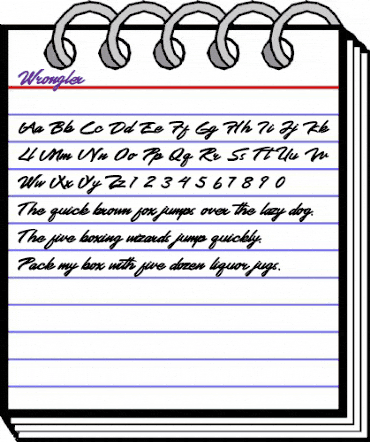 Wrangler
Aa Bb Cc Dd Ee Ff Gg Hh Ii Jj Kk
Ll Mm Nn Oo Pp Qq Rr Ss Tt Uu Vv
Ww Xx Yy Zz 1 2 3 4 5 6 7 8 9 0
The quick brown fox jumps over the lazy dog.
The five boxing wizards jump quickly.
Pack my box with five dozen liquor jugs.